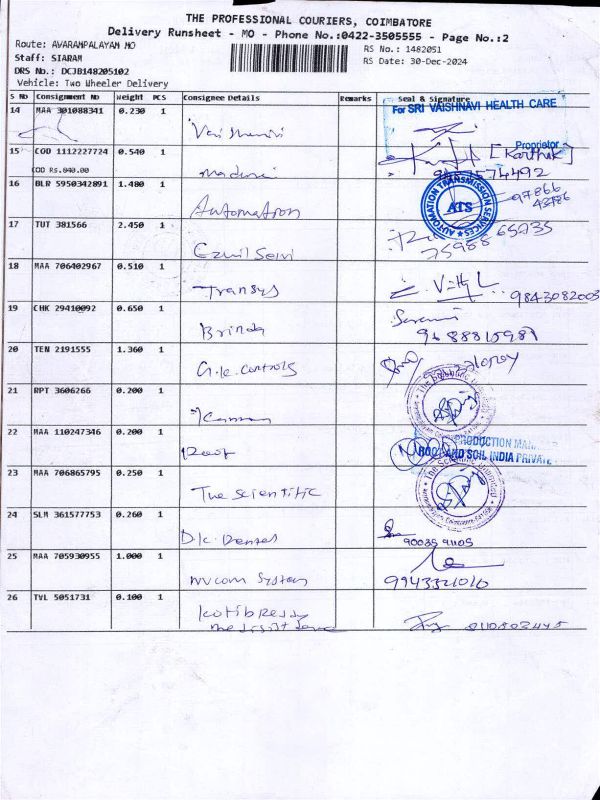 THE PROFESSIONAL COURIERS, COIMBATORE
Delivery Runsheet - MO - Phone No.:0422-3505555 - Page No.:2
Route: AVARAMPALAYAM MO
RS No.: 1482051
Staff: SIARAM
RS Date: 30-Dec-2024
DRS No.: DCJB148205102
Vehicle: Two Wheeler Delivery
S No Consignment No Weight PCS Consignee Details Remarks Seal & Signature
14 MAA 301088341 0.230 1 Vaishnavi
For SRI VAISHNAVI HEALTH CARE
Proprietor
15 COD 1112227724 0.540 1
COD Rs.840.00
[Karthik]
16 BLR 5950342891 1.480 1 Automation
AUTOMATION TRANSMISSION SERVICES
ATS
97866
17 TUT 381566 2.450 1 Ezhil Selvi
75988 65735
18 MAA 706402967 0.510 1 Transys
9843082003
19 CHK 29410092 0.650 1 Brinda
20 TEN 2191555 1.360 1 G.K. Controls
21 RPT 3606266 0.200 1
22 MAA 110247346 0.200 1 Root
PRODUCTION
ROOT AND SOIL INDIA PRIVATE
23 MAA 706865795 0.250 1 The Scientific
24 SLM 361577753 0.260 1 D.K. Dental
90035 91105
25 MAA 705930955 1.000 1 nvcom System
9943321010
26 TVL 5051731 0.100 1